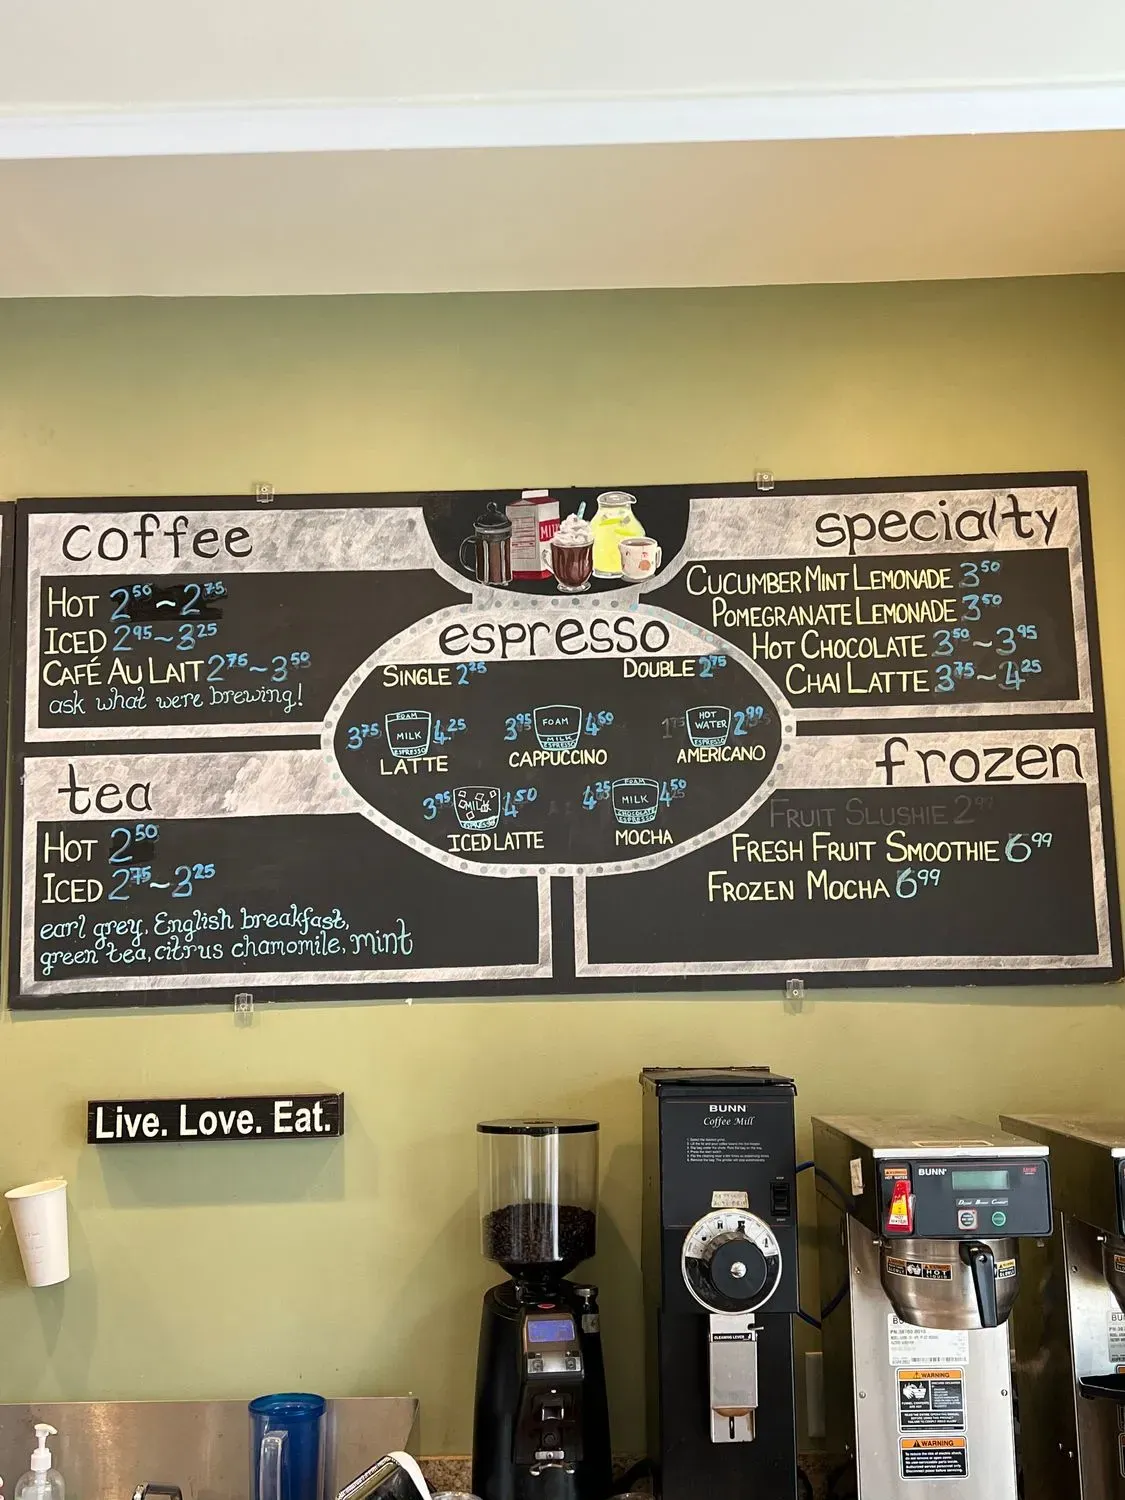 coffee
HOT 2.50 ~ 2.75
ICED 2.95 ~ 3.25
CAFÉ AU LAIT 2.75 ~ 3.50
ask what were brewing!
tea
HOT 2.50
ICED 2.75 ~ 3.25
earl grey, English breakfast,
green tea, citrus chamomile, mint
MILK
espresso
SINGLE 2.25 DOUBLE 2.75
3.75 FOAM MILK ESPRESSO 4.25
LATTE
3.95 FOAM MILK ESPRESSO 4.60
CAPPUCCINO
HOT WATER ESPRESSO 2.99
AMERICANO
3.95 MILK ESPRESSO 4.50
ICED LATTE
4.25 FOAM MILK CHOCOLATE ESPRESSO 4.50
MOCHA
specialty
CUCUMBER MINT LEMONADE 3.50
POMEGRANATE LEMONADE 3.50
HOT CHOCOLATE 3.50 ~ 3.95
CHAI LATTE 3.75 ~ 4.25
frozen
FRUIT SLUSHIE 2.99
FRESH FRUIT SMOOTHIE 6.99
FROZEN MOCHA 6.99
Live. Love. Eat.
BUNN
Coffee Mill
CLEANING LEVER
BUNN
HOT
WARNING
WARNING